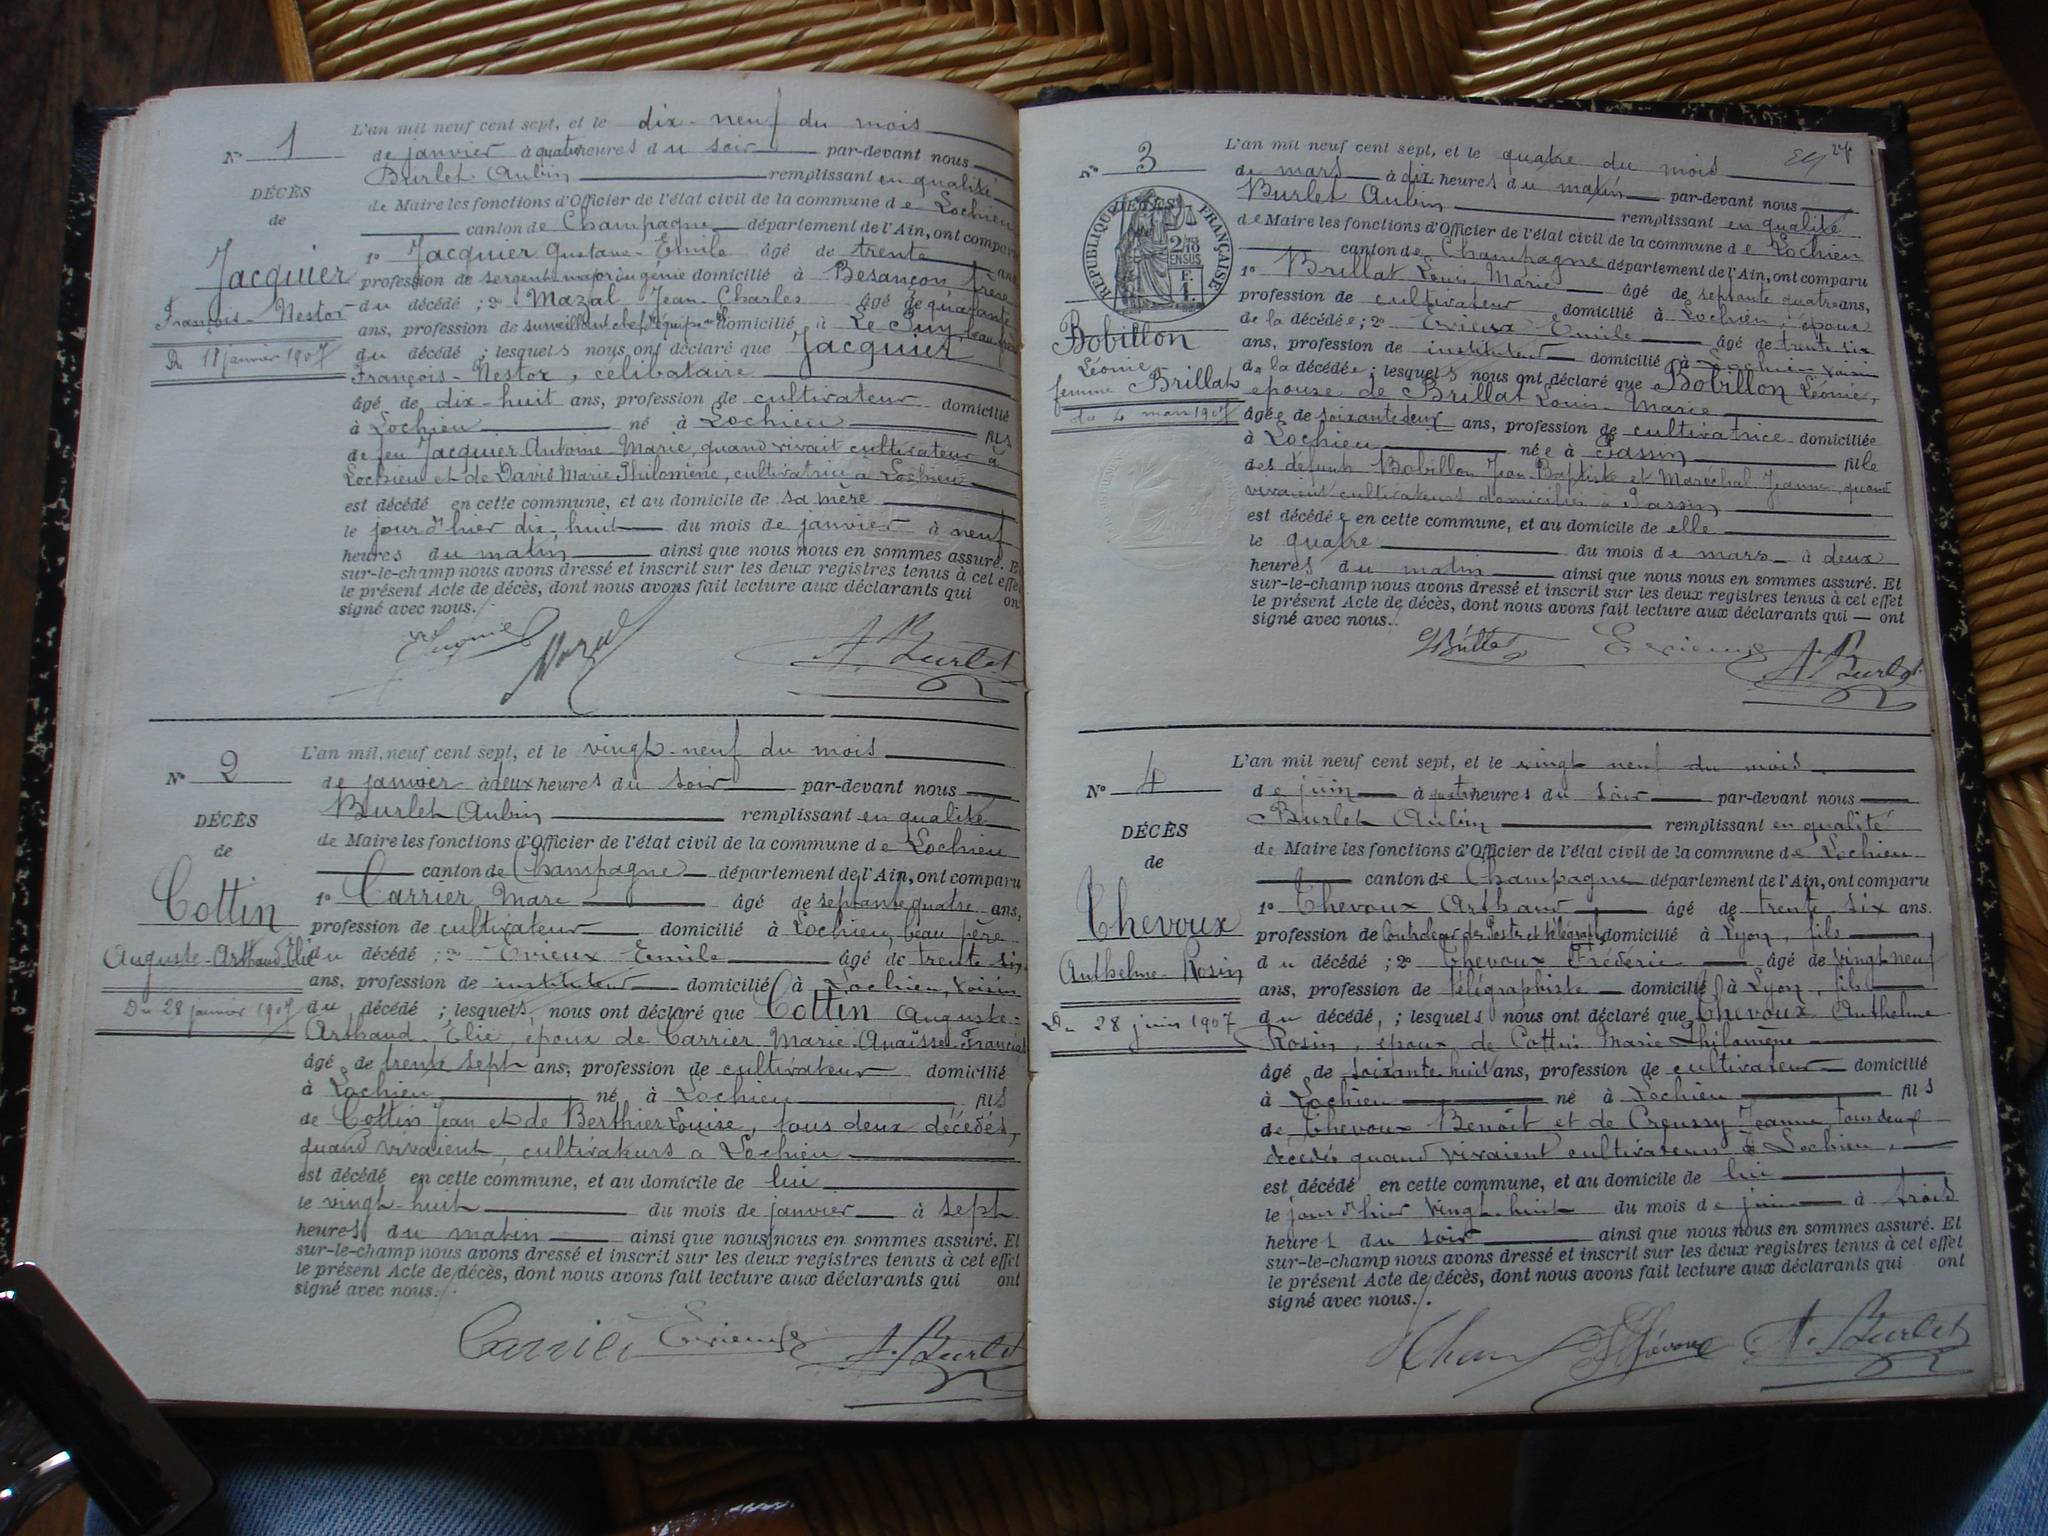 N° 1
DÉCÈS
de
Jacquier
François-Nestor
Du 18 janvier 1907
L'an mil neuf cent sept, et le dix-neuf du mois
de janvier à quatre heures du soir par-devant nous
Burlet Aubin remplissant en qualité
de Maire les fonctions d'Officier de l'état civil de la commune de Lochieu
canton de Champagne département de l'Ain, ont comparu
1° Jacquier Gustave-Emile âgé de trente ans
profession de sergent-major du génie domicilié à Besançon, frère
du décédé ; 2° Mazal Jean-Charles âgé de quarante
ans, profession de surveillant chef d'équipe domicilié à Le Puy, beau frère
du décédé ; lesquels nous ont déclaré que Jacquier
François-Nestor, célibataire
âgé de dix-huit ans, profession de cultivateur domicilié
à Lochieu né à Lochieu fils
de feu Jacquier Antoine-Marie, quand vivait cultivateur à
Lochieu et de David Marie Philomène, cultivatrice à Lochieu
est décédé en cette commune, et au domicile de sa mère
le jour d'hier dix-huit du mois de janvier à neuf
heures du matin ainsi que nous nous en sommes assuré. Et
sur-le-champ nous avons dressé et inscrit sur les deux registres tenus à cet effet
le présent Acte de décès, dont nous avons fait lecture aux déclarants qui ont
signé avec nous./.
Mazal A. Burlet
N° 2
DÉCÈS
de
Cottin
Auguste-Arthaud-Elie
Du 28 janvier 1907
L'an mil neuf cent sept, et le vingt-neuf du mois
de janvier à deux heures du soir par-devant nous
Burlet Aubin remplissant en qualité
de Maire les fonctions d'Officier de l'état civil de la commune de Lochieu
canton de Champagne département de l'Ain, ont comparu
1° Carrier Marc âgé de septante quatre ans,
profession de cultivateur domicilié à Lochieu, beau père
du décédé ; 2° Evieux Emile âgé de trente six
ans, profession de instituteur domicilié à Lochieu, voisin
du décédé ; lesquels nous ont déclaré que Cottin Auguste-
Arthaud-Elie, époux de Carrier Marie-Anaïsse-Francine
âgé de trente sept ans, profession de cultivateur domicilié
à Lochieu né à Lochieu fils
de Cottin Jean et de Berthier Louise, tous deux décédés,
quand vivaient, cultivateurs à Lochieu
est décédé en cette commune, et au domicile de lui
le vingt-huit du mois de janvier à sept
heures du matin ainsi que nous nous en sommes assuré. Et
sur-le-champ nous avons dressé et inscrit sur les deux registres tenus à cet effet
le présent Acte de décès, dont nous avons fait lecture aux déclarants qui ont
signé avec nous./.
Carrier Evieux A. Burlet
N° 3
RÉPUBLIQUE FRANÇAISE
2/10 EN SUS
1 F.
Bobillon
Léonie
femme Brillat
du 4 mars 1907
L'an mil neuf cent sept, et le quatre du mois
de mars à dix heures du matin par-devant nous
Burlet Aubin remplissant en qualité
de Maire les fonctions d'Officier de l'état civil de la commune de Lochieu
canton de Champagne département de l'Ain, ont comparu
1° Brillat Louis-Marie âgé de septante quatre ans,
profession de cultivateur domicilié à Lochieu, époux
de la décédée ; 2° Evieux Emile âgé de trente six
ans, profession de instituteur domicilié à Lochieu voisin
de la décédée ; lesquels nous ont déclaré que Bobillon Léonie,
épouse de Brillat Louis-Marie
âgée de soixante deux ans, profession de cultivatrice domiciliée
à Lochieu née à Passin fille
des défunts Bobillon Jean-Baptiste et Maréchal Jeanne, quand
vivaient cultivateurs domiciliés à Passin
est décédée en cette commune, et au domicile de elle
le quatre du mois de mars à deux
heures du matin ainsi que nous nous en sommes assuré. Et
sur-le-champ nous avons dressé et inscrit sur les deux registres tenus à cet effet
le présent Acte de décès, dont nous avons fait lecture aux déclarants qui ont
signé avec nous.
Brillat Evieux A. Burlet
N° 4
DÉCÈS
de
Thevoux
Anthelme-Rosin
Du 28 juin 1907
L'an mil neuf cent sept, et le vingt neuf du mois
de juin à quatre heures du soir par-devant nous
Burlet Aubin remplissant en qualité
de Maire les fonctions d'Officier de l'état civil de la commune de Lochieu
canton de Champagne département de l'Ain, ont comparu
1° Thevoux Arthaud âgé de trente-six ans.
profession de Controleur des Postes et télégraphes domicilié à Lyon, fils
du décédé ; 2° Thevoux Frédéric âgé de vingt neuf
ans, profession de télégraphiste domicilié à Lyon, fils
du décédé, ; lesquels nous ont déclaré que Thevoux Anthelme
Rosin, époux de Cottin Marie Philomène
âgé de soixante huit ans, profession de cultivateur domicilié
à Lochieu né à Lochieu fils
de Thevoux Benoît et de Creussy Jeanne, tous deux
décédés quand vivaient cultivateurs à Lochieu
est décédé en cette commune, et au domicile de lui
le jour d'hier vingt-huit du mois de juin à trois
heures du soir ainsi que nous nous en sommes assuré. Et
sur-le-champ nous avons dressé et inscrit sur les deux registres tenus à cet effet
le présent Acte de décès, dont nous avons fait lecture aux déclarants qui ont
signé avec nous./.
A. Burlet